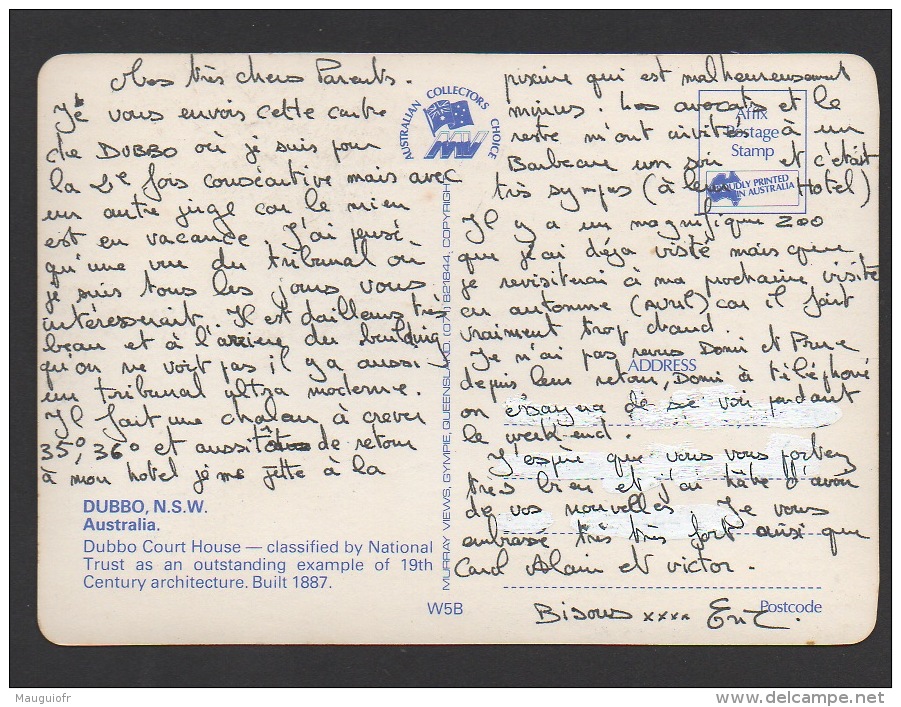 Mes très chers Parents.
Je vous envois cette carte
de DUBBO où je suis pour
la 2e fois consécutive mais avec
un autre juge car le mien
est en vacance. J'ai pensé
qu'une vue du tribunal où
je suis tous les jours vous
intéresserait. Il est d'ailleurs très
beau et à l'arrière du building
qu'on ne voit pas il y a aussi
un tribunal ultra moderne.
Il fait une chaleur à crever
35°, 36° et aussitôt de retour
à mon hotel je me jette à la
piscine qui est malheureusement
minus. Les avocats et le
reste m'ont invités à un
Barbecue un soir et c'était
très sympas (à leur Hotel)
Il y a un magnifique zoo
que j'ai déja visité mais que
je revisiterai à ma prochaine visite
en automne (avril) car il fait
vraiment trop chaud.
Je n'ai pas revus Domi et Prue
depuis leur retour, Domi à téléphoné
on essayera de se voir pendant
le week-end.
J'espère que vous vous portez
très bien et j'ai hâte d'avoir
de vos nouvelles. Je vous
embrasse très très fort ainsi que
Carol Alain et victor.
Bisous xxxx Eric.
AUSTRALIAN COLLECTORS CHOICE
MV
Affix
Postage
Stamp
PROUDLY PRINTED
IN AUSTRALIA
MURRAY VIEWS, GYMPIE, QUEENSLAND. (071) 821844, COPYRIGHT
ADDRESS
DUBBO, N.S.W.
Australia.
Dubbo Court House — classified by National
Trust as an outstanding example of 19th
Century architecture. Built 1887.
W5B
Postcode
Mauguiofr
www.delcampe.net